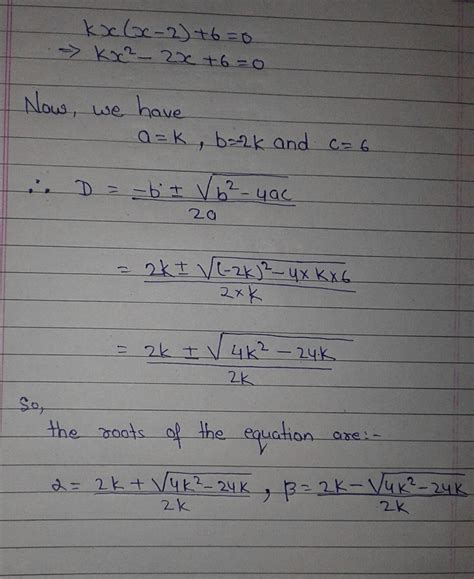 kx(x-2)+6=0
⇒ kx²- 2x +6=0
Now, we have
a=k, b=2k and c=6
∴ D = -b ± √b²-4ac / 2a
= 2k ± √(-2k)²-4×k×6 / 2×k
= 2k ± √4k²-24k / 2k
So,
the roots of the equation are:-
α= 2k+√4k²-24k / 2k , β= 2k-√4k²-24k / 2k